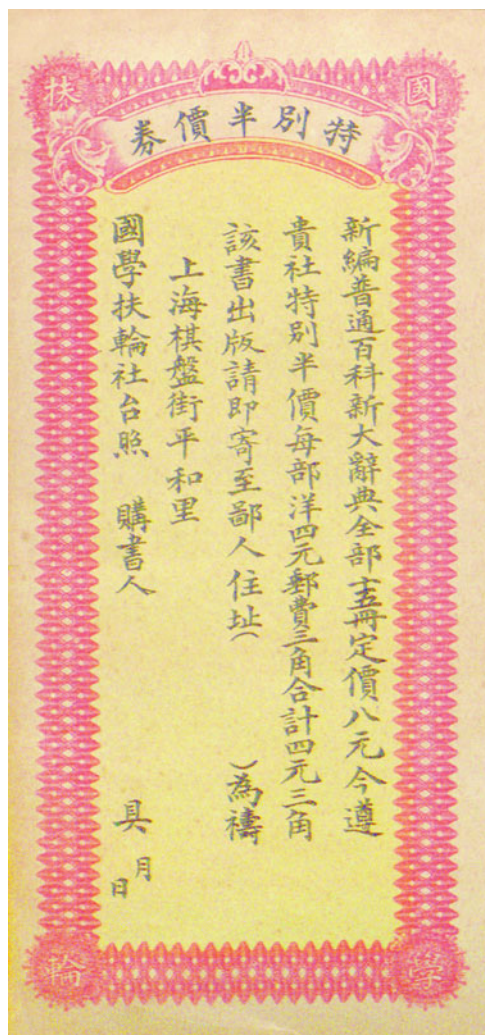 國學扶輪
特別半價券
新編普通百科新大辭典全部十五冊定價八元今遵
貴社特別半價每部洋四元郵費三角合計四元三角
該書出版請即寄至鄙人住址（　　）為禱
上海棋盤街平和里
國學扶輪社台照　購書人　具　月　日